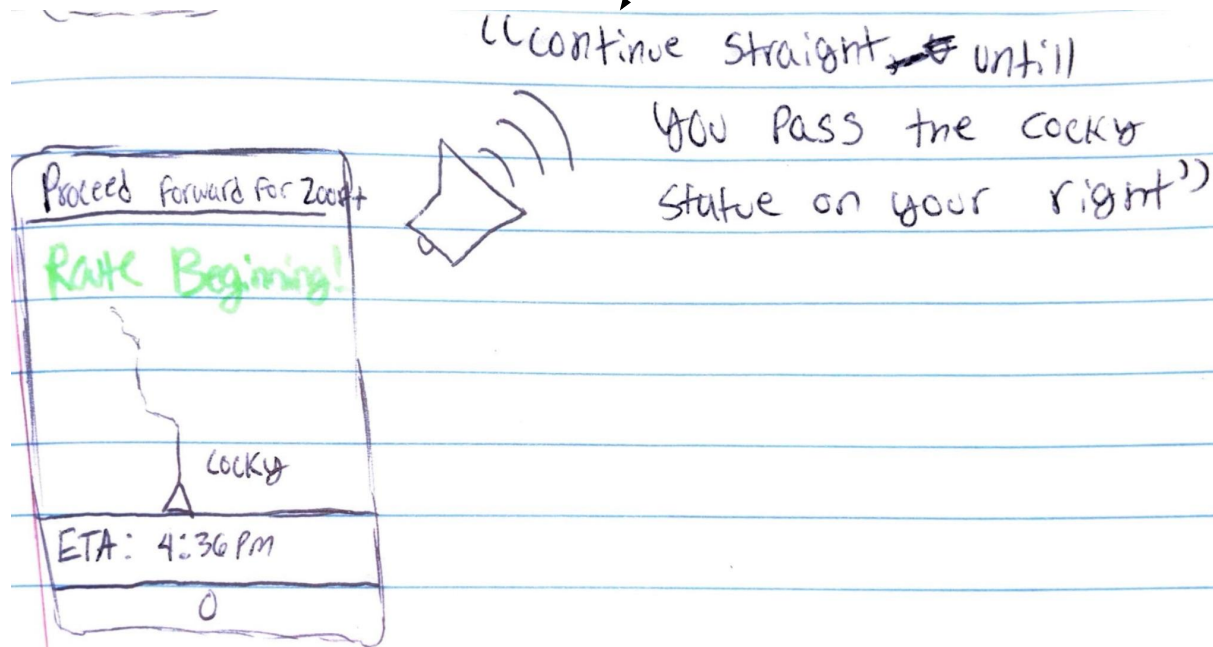 “continue straight, untill
you pass the cocky
statue on your right”
Proceed forward for 200ft
Route Beginning!
cocky
ETA: 4:36 PM